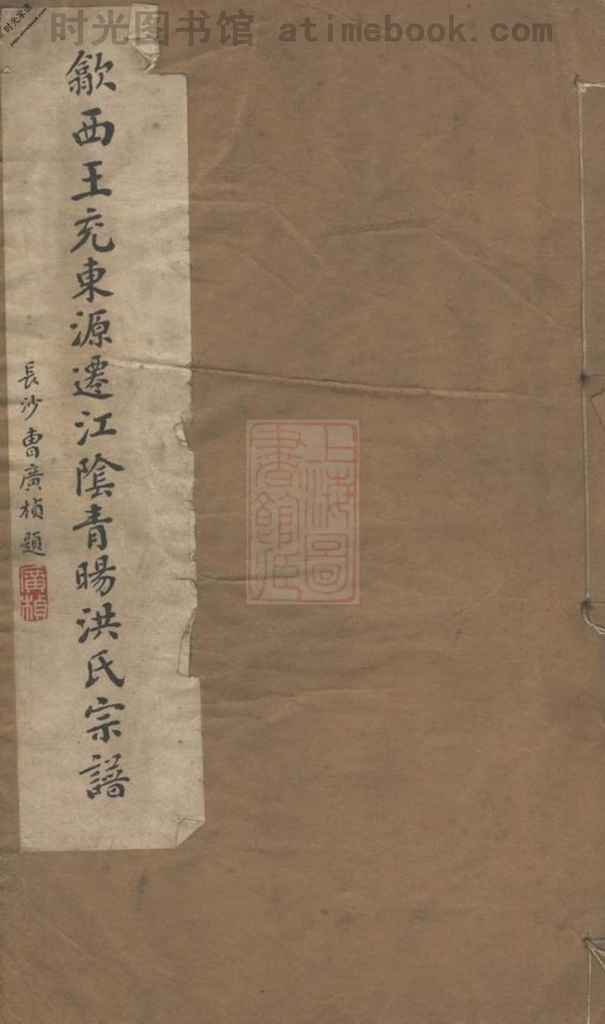 时光图书馆 - atimebook.com
歙西王充東源遷江陰青暘洪氏宗譜
長沙曹廣楨題
廣楨
上海圖
書館藏